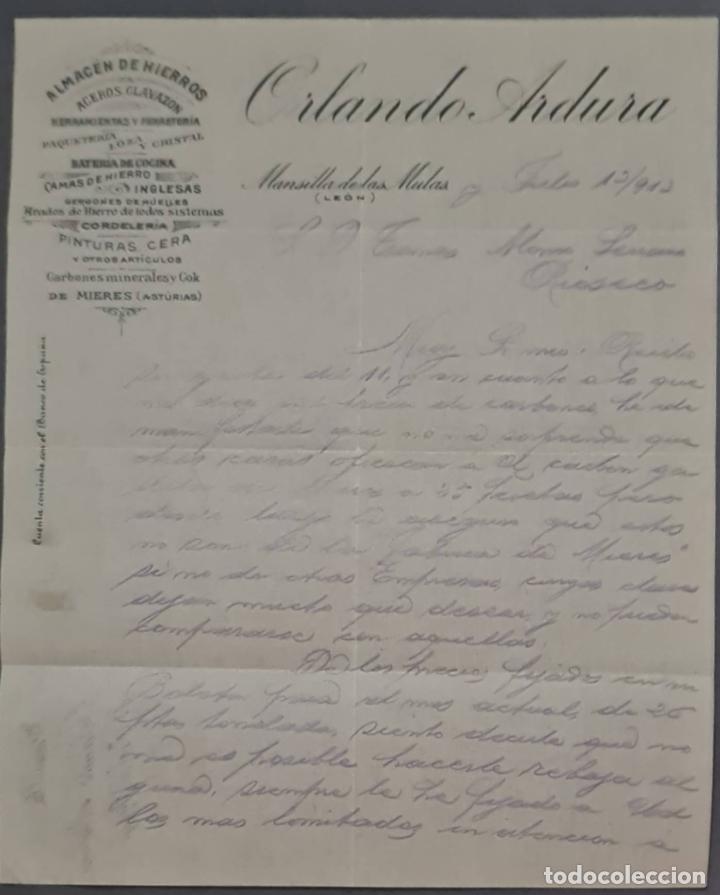 ALMACEN DE HIERROS
ACEROS, CLAVAZÓN
HERRAMIENTAS Y FERRETERÍA
PAQUETERÍA LOZA Y CRISTAL
BATERÍA DE COCINA
CAMAS DE HIERRO
INGLESAS
GERGONES DE MUELLES
Arados de Hierro de todos sistemas
CORDELERÍA
PINTURAS, CERA
Y OTROS ARTÍCULOS
Carbones minerales y Cok
DE MIERES (ASTÚRIAS)
Cuenta corriente con el Banco de España
Orlando Ardura
Mansilla de las Mulas
(LEÓN)
Julio 13/913
Rioseco
Muy Sr mio: Recibi
del 11, y en cuanto a lo que
me dice de carbones, he de
manifestarle que no me sorprende que
otras casas ofrezcan a el carbon
a pesetas, pero
desde luego le aseguro que estos
no son de la fabrica de "Mieres"
si no de otras Empresas, cuyas clases
dejan mucho que desear, y no pueden
compararse con aquellos.
De los precios fijados en mi
para el mes actual, de 26
ptas tonelada, siento decirle que no
me es posible hacerle rebaja al
guna, siempre le he fijado a Vd
los mas limitados, en atencion a
todocoleccion
todocoleccion.net